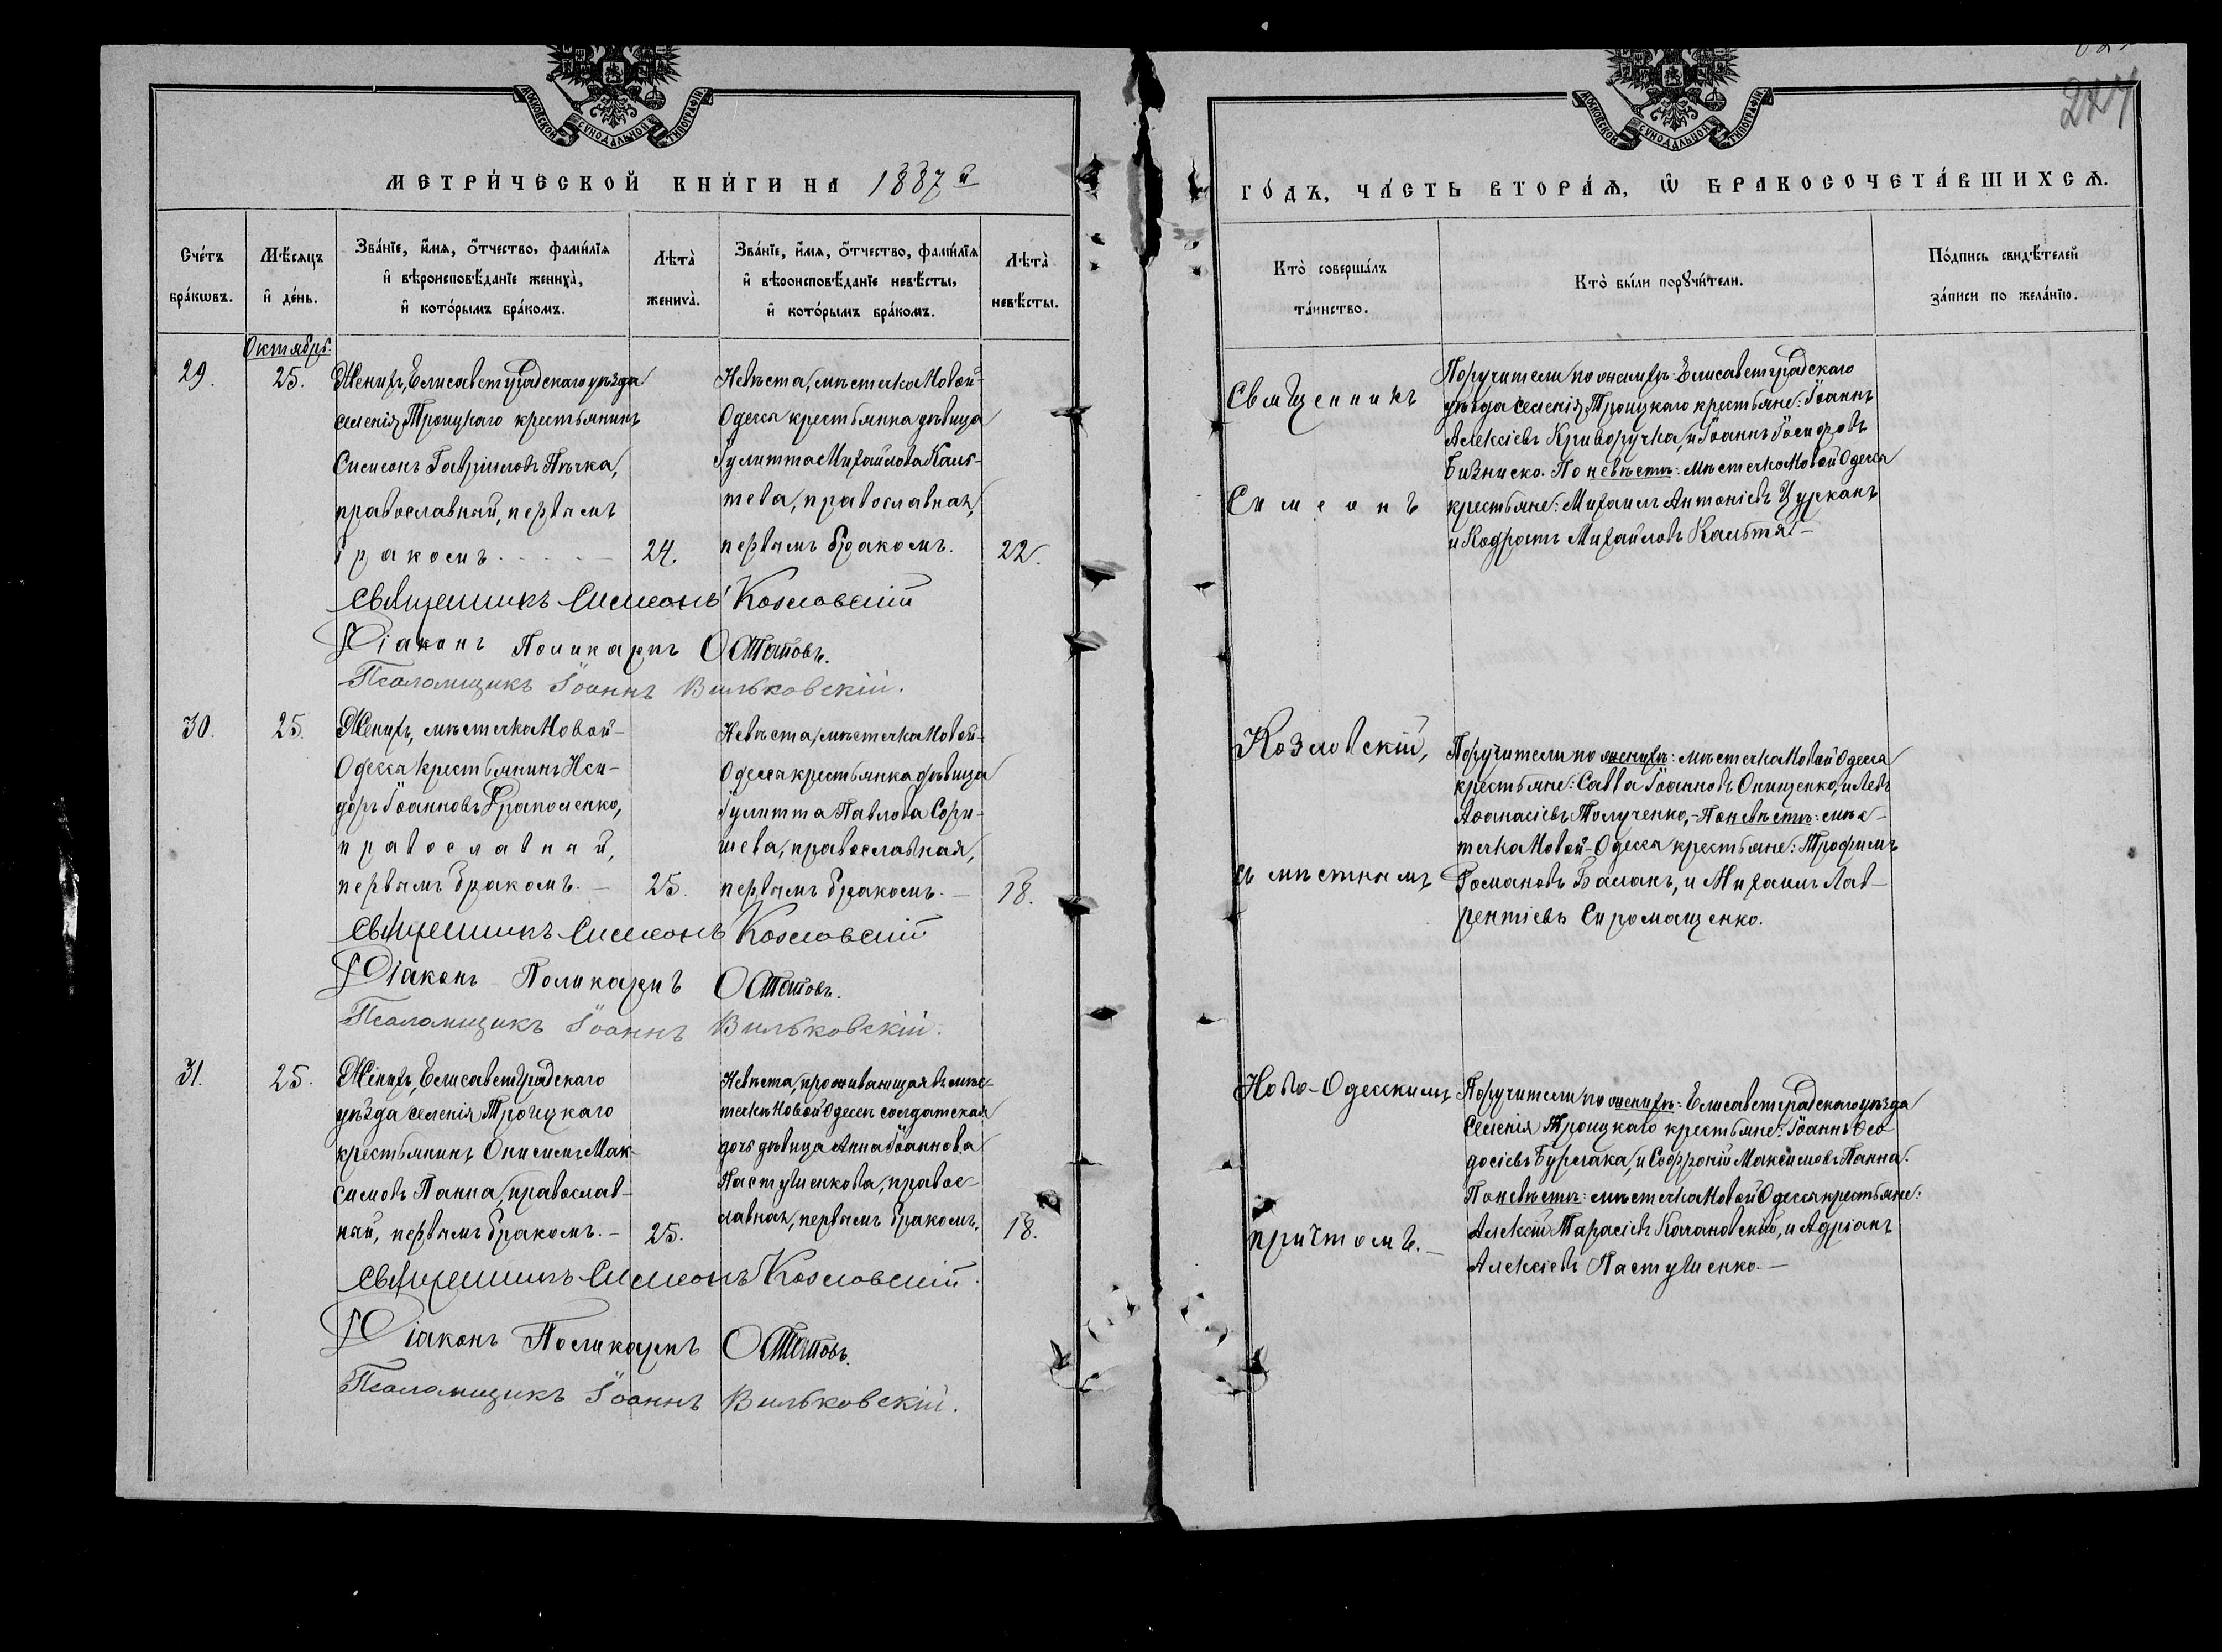 МОСКОВСКОЙ СѴНОДАЛЬНОЙ ТИПОГРАФІИ
МЕТРИ́ЧЕСКОЙ КНИ́ГИ НА 1887 й
Сче́тъ бра́кωвъ.
Мѣ́сяцъ и҆ де́нь.
Зва́нїе, и҆́мя, ѻ҆́тчество, фами́лїя и҆ вѣроисповѣ́данїе жениха̀, и҆ кото́рымъ бра́комъ.
Лѣта̀ жениха̀.
Зва́нїе, и҆́мя, ѻ҆́тчество, фами́лїя и҆ вѣроисповѣ́данїе невѣ́сты, и҆ кото́рымъ бра́комъ.
Лѣта̀ невѣ́сты.
Октябрь.
29.
25.
Женихъ, Елисаветградскаго уѣзда
селенія Троицкаго крестьянинъ
Симеонъ Гавріиловъ Пѣчка,
православный, первымъ
бракомъ.
24.
Невѣста, мѣстечка Новой-
Одесса крестьянка дѣвица
Іулитта Михайлова Каль-
тева, православная,
первымъ бракомъ.
22.
Священникъ Симеонъ Козловскій
Діаконъ Поликарпъ Остатовъ.
Псаломщикъ Іоаннъ Вильковскій.
30.
25.
Женихъ, мѣстечка Новой-
Одесса крестьянинъ Иси-
доръ Іоанновъ Драпоменко,
православный,
первымъ бракомъ. —
25.
Невѣста, мѣстечка Новой-
Одесса крестьянка дѣвица
Іулитта Павлова Сори-
шева, православная,
первымъ бракомъ. —
18.
Священникъ Симеонъ Козловскій
Діаконъ Поликарпъ Остатовъ.
Псаломщикъ Іоаннъ Вильковскій.
31.
25.
Женихъ, Елисаветградскаго
уѣзда селенія Троицкаго
крестьянинъ Онисимъ Мак-
симовъ Панна, православ-
ный, первымъ бракомъ. —
25.
Невѣста, проживающая въ мѣс-
течкѣ Новой Одессѣ солдатская
дочь дѣвица Анна Іоаннова
Пастушенкова, правос-
лавная, первымъ бракомъ.
18.
Священникъ Симеонъ Козловскій.
Діаконъ Поликарпъ Остатовъ.
Псаломщикъ Іоаннъ Вильковскій.
МОСКОВСКОЙ СѴНОДАЛЬНОЙ ТИПОГРАФІИ
ГО́ДЪ, ЧА́СТЬ ВТОРА́Я, Ѡ БРАКОСОЧЕТА́ВШИХСЯ.
Кто̀ соверша́лъ та́инство.
Кто̀ бы́ли порꙋчи́тели.
По́дпись свидѣ́телей за́писи по жела́нїю.
Священникъ
Симеонъ
Козловскій,
съ мѣстнымъ
Ново-Одесскимъ
причтомъ. —
Поручители по женихѣ: Елисаветградскаго
уѣзда селенія Троицкаго крестьяне: Іоаннъ
Алексіевъ Криворучка, и Іоаннъ Іосифовъ
Бизниско. По невѣстѣ: мѣстечка Новой Одесса
крестьяне: Михаилъ Антоніевъ Цурканъ
и Кодратъ Михайловъ Кальтя. —
Поручители по женихѣ: мѣстечка Новой Одесса
крестьяне: Савва Іоанновъ Онищенко, и Левъ
Аѳанасіевъ Толученко, - По невѣстѣ: мѣс-
течка Новой-Одесса крестьяне: Трофимъ
Романовъ Баланъ, и Михаилъ Лав-
рентіевъ Сиромащенко.
Поручители по женихѣ: Елисаветградскаго уѣзда
селенія Троицкаго крестьяне: Іоаннъ Ѳео-
досіевъ Бурлака, и Софроній Максимовъ Панна.
По невѣстѣ: мѣстечка Новой Одесса крестьяне:
Алексій Тарасіевъ Качановскій, и Адріанъ
Алексіевъ Пастушенко. —